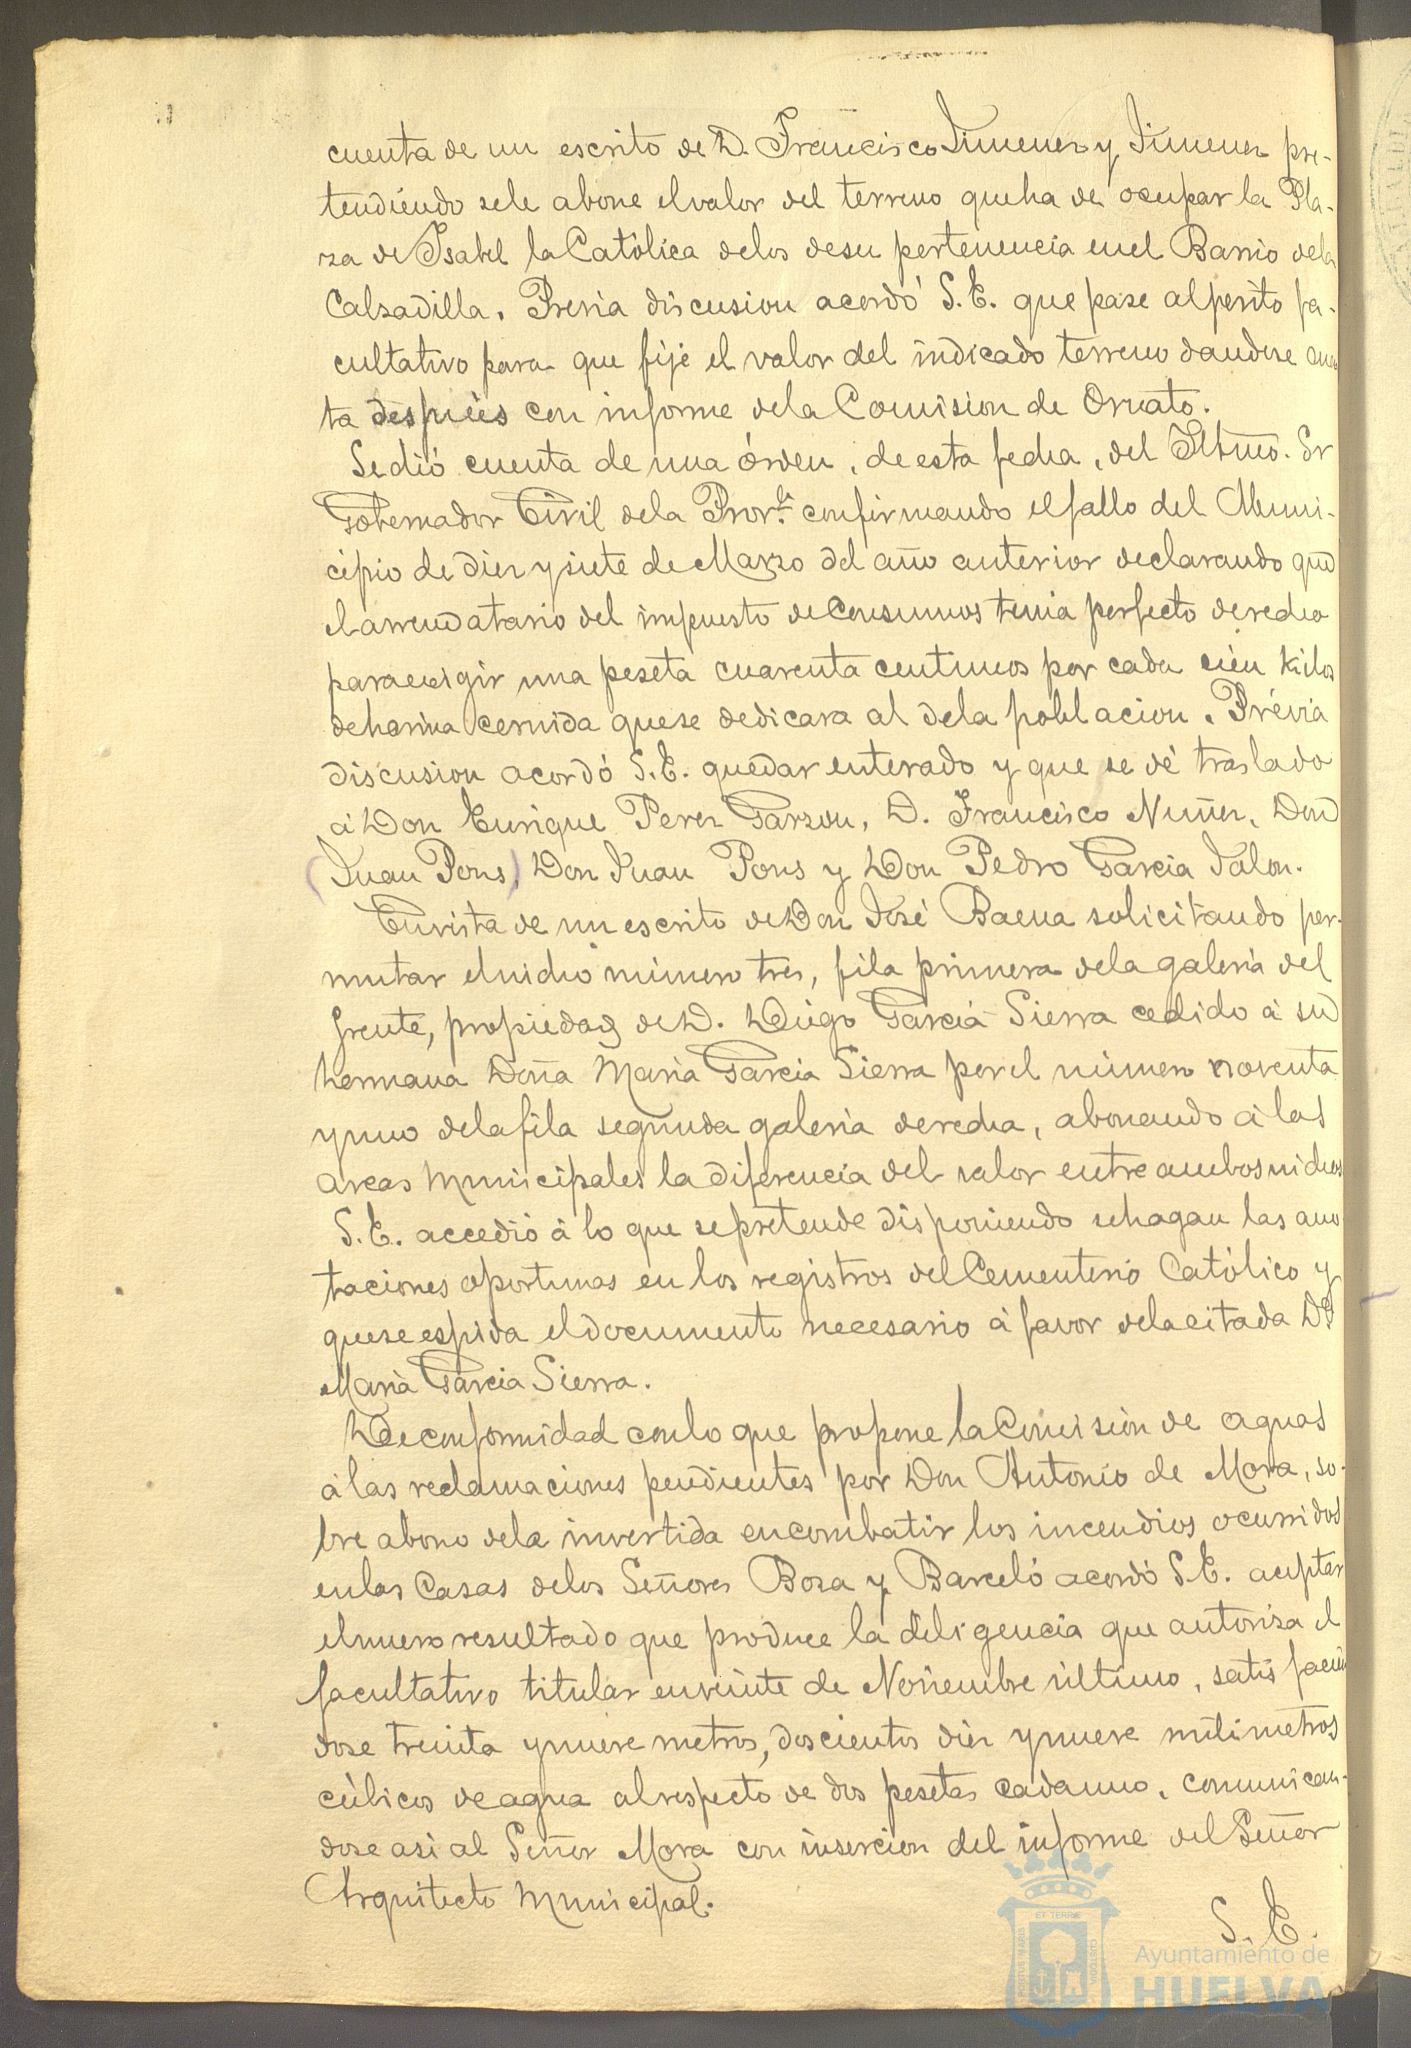 cuenta de un escrito de D. Francisco Jimenez y Jimenez pre-
tendiendo sele abone el valor del terreno que ha de ocupar la Pla-
za de Isabel la Católica delos desu pertenencia en el Barrio dela
Calzadilla. Previa discusion acordó S.E. que pase al perito fa-
cultativo para que fije el valor del indicado terreno dandose cuen
ta despues con informe dela Comision de Ornato.
Se dió cuenta de una órden, de esta fecha, del Iltmo. Sr
Gobernador Civil dela Prov.ª confirmando el fallo del Muni-
cipio de diez y siete de Marzo del año anterior declarando que
el arrendatario del impuesto de Consumos tenia perfecto derecho
para exigir una peseta cuarenta centimos por cada cien kilos
de harina cernida que se dedicara al dela poblacion. Prévia
discusion acordó S.E. quedar enterado y que se dé traslado
á Don Enrique Perez Garzon, D. Francisco Nuñez, Don
(Juan Pons), Don Juan Pons y Don Pedro Garcia Jalon.
En vista de un escrito de Don José Baena solicitando per-
mutar el nicho número tres, fila primera dela galeria del
frente, propiedad de D. Diego Garcia Sierra cedido á su
hermana Doña Maria Garcia Sierra por el número noventa
y uno dela fila segunda galeria derecha, abonando á las
arcas Municipales la diferencia del valor entre ambos nichos
S.E. accedió á lo que se pretende disponiendo se hagan las ano
taciones oportunas en los registros del Cementerio Católico y
que se espida el documento necesario á favor dela citada Dª
Maria Garcia Sierra.
De conformidad con lo que propone la Comision de aguas
á las reclamaciones pendientes por Don Antonio de Mora, so-
bre abono dela invertida en combatir los incendios ocurridos
en las Casas delos Señores Boza y Barceló acordó S.E. aceptar
el nuevo resultado que produce la diligencia que autoriza el
facultativo titular en veinte de Noviembre último, satisfacien
dose treinta y nueve metros, doscientos diez y nueve milimetros
cúbicos de agua al respecto de dos pesetas cada uno, comunican-
dose asi al Señor Mora con insercion del informe del Señor
Arquitecto Municipal.
S. E.
Ayuntamiento de
HUELVA